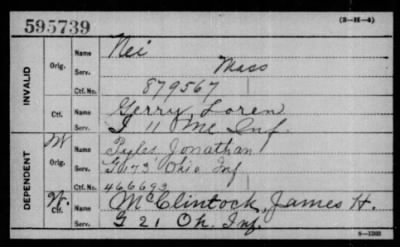 595739
(3-H-4)
INVALID
Orig.
Name
Nei
Serv.
Mass
Ctf. No.
879567
Ctf.
Name
Gerry, Loren
Serv.
I 11 Me Inf.
DEPENDENT
W
Orig.
Name
Pyles Jonathan
Serv.
G 173 Ohio Inf
Ctf. No.
466693
W.
Ctf.
Name
McClintock, James H.
Serv.
G 21 Oh. Inf.